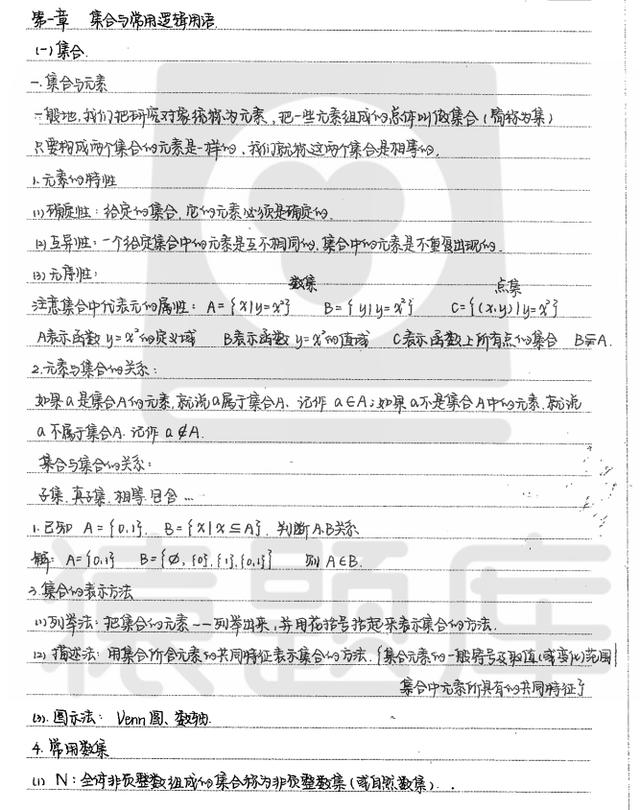 第一章 集合与常用逻辑用语
(一) 集合
一. 集合与元素
一般地,我们把研究对象统称为元素,把一些元素组成的总体叫做集合(简称为集)
只要构成两个集合的元素是一样的,我们就称这两个集合是相等的.
1.元素的特性
(1)确定性:给定的集合,它的元素必须是确定的.
(2)互异性:一个给定集合中的元素是互不相同的,集合中的元素是不重复出现的.
(3)无序性:
数集 点集
注意集合中代表元的属性: A={x|y=x²} B={y|y=x²} C={(x,y)|y=x²}
A表示函数y=x²的定义域 B表示函数y=x²的值域 C表示函数上所有点的集合 B⫋A.
2.元素与集合的关系:
如果a是集合A的元素,就说a属于集合A. 记作 a∈A;如果a不是集合A中的元素,就说
a不属于集合A. 记作 a∉A.
集合与集合的关系:
子集. 真子集. 相等. 包含 …
1.已知 A={0,1}. B={x|x⊆A}. 判断A.B关系
解: A={0,1} B={∅,{0},{1},{0,1}} 则 A∈B.
3.集合的表示方法
(1)列举法:把集合的元素一一列举出来,并用花括号括起来表示集合的方法.
(2)描述法:用集合所含元素的共同特征表示集合的方法.{集合元素的一般符号及取值(或变化)范围|
集合中元素所具有的共同特征}
(3).图示法: Venn图、数轴.
4.常用数集
(1) N:全体非负整数组成的集合称为非负整数集(或自然数集).
猿题库